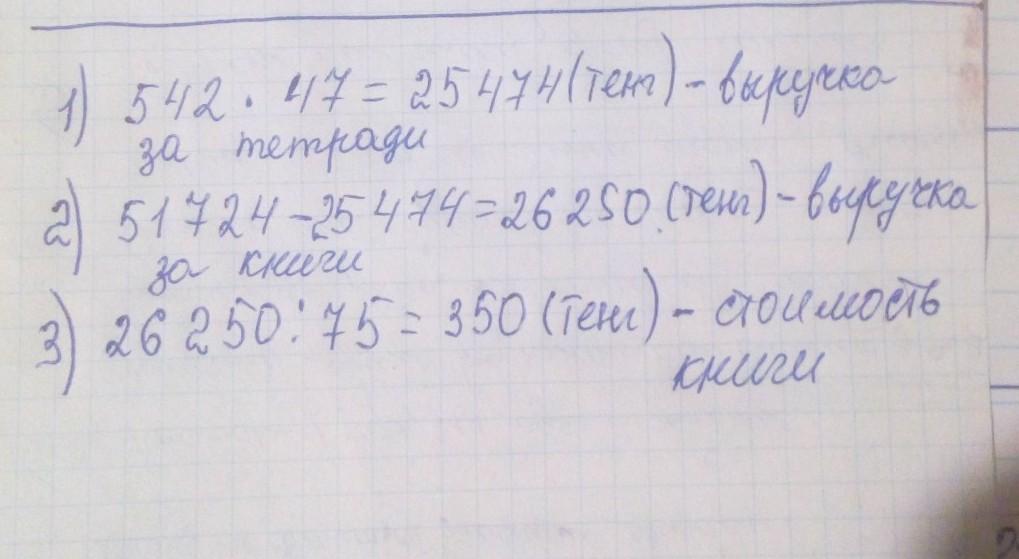 1) 542 · 47 = 25 474 (тенг) - выручка
за тетради
2) 51724 - 25 474 = 26 250 (тенг) - выручка
за книги
3) 26 250 : 75 = 350 (тенг) - стоимость
книги